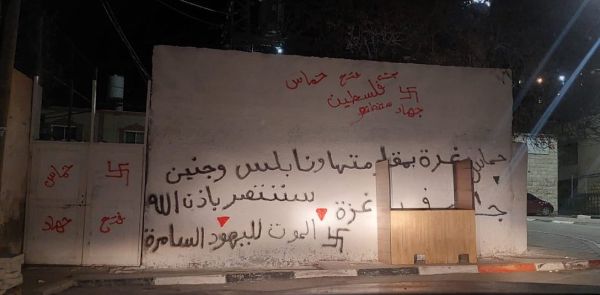 حماس
فتح
جهاد
حماس فتح
فلسطين
جهاد
حماس غزة بمقاومتها ونابلس وجنين
ستنتصر باذن الله
غزة
الموت لليهود السامرة